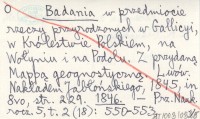 O Badania w przedmiocie
rzeczy przyrodzonych w Gallicyi,
w Królestwie Polskiem, na
Wołyniu i na Podolu. Z przydaną
Mappą geograficzną. Lwów.
Nakładem Jabłońskiego, 1845, in
8vo, str. 229. 1846. – Prz. Nauk.
rocz. 5, t. 2 (18): 550-553.